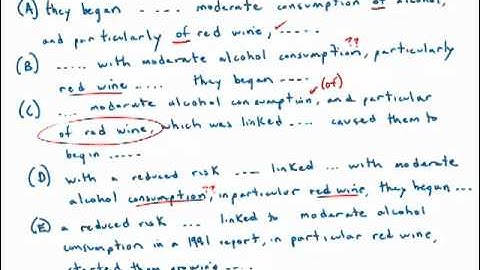 (A) they began ..... moderate consumption of alcohol,
and particularly of red wine, .....
(B) ..... with moderate alcohol consumption, particularly ??
red wine ..... they began .....
(C) ... moderate alcohol consumption, and particular (of)
of red wine, which was linked .... caused them to
begin .....
(D) with a reduced risk .... linked ... with moderate
alcohol consumption, in particular red wine, they began ... ??
(E) a reduced risk ... linked to moderate alcohol
consumption in a 1991 report, in particular red wine,
started them growing .....